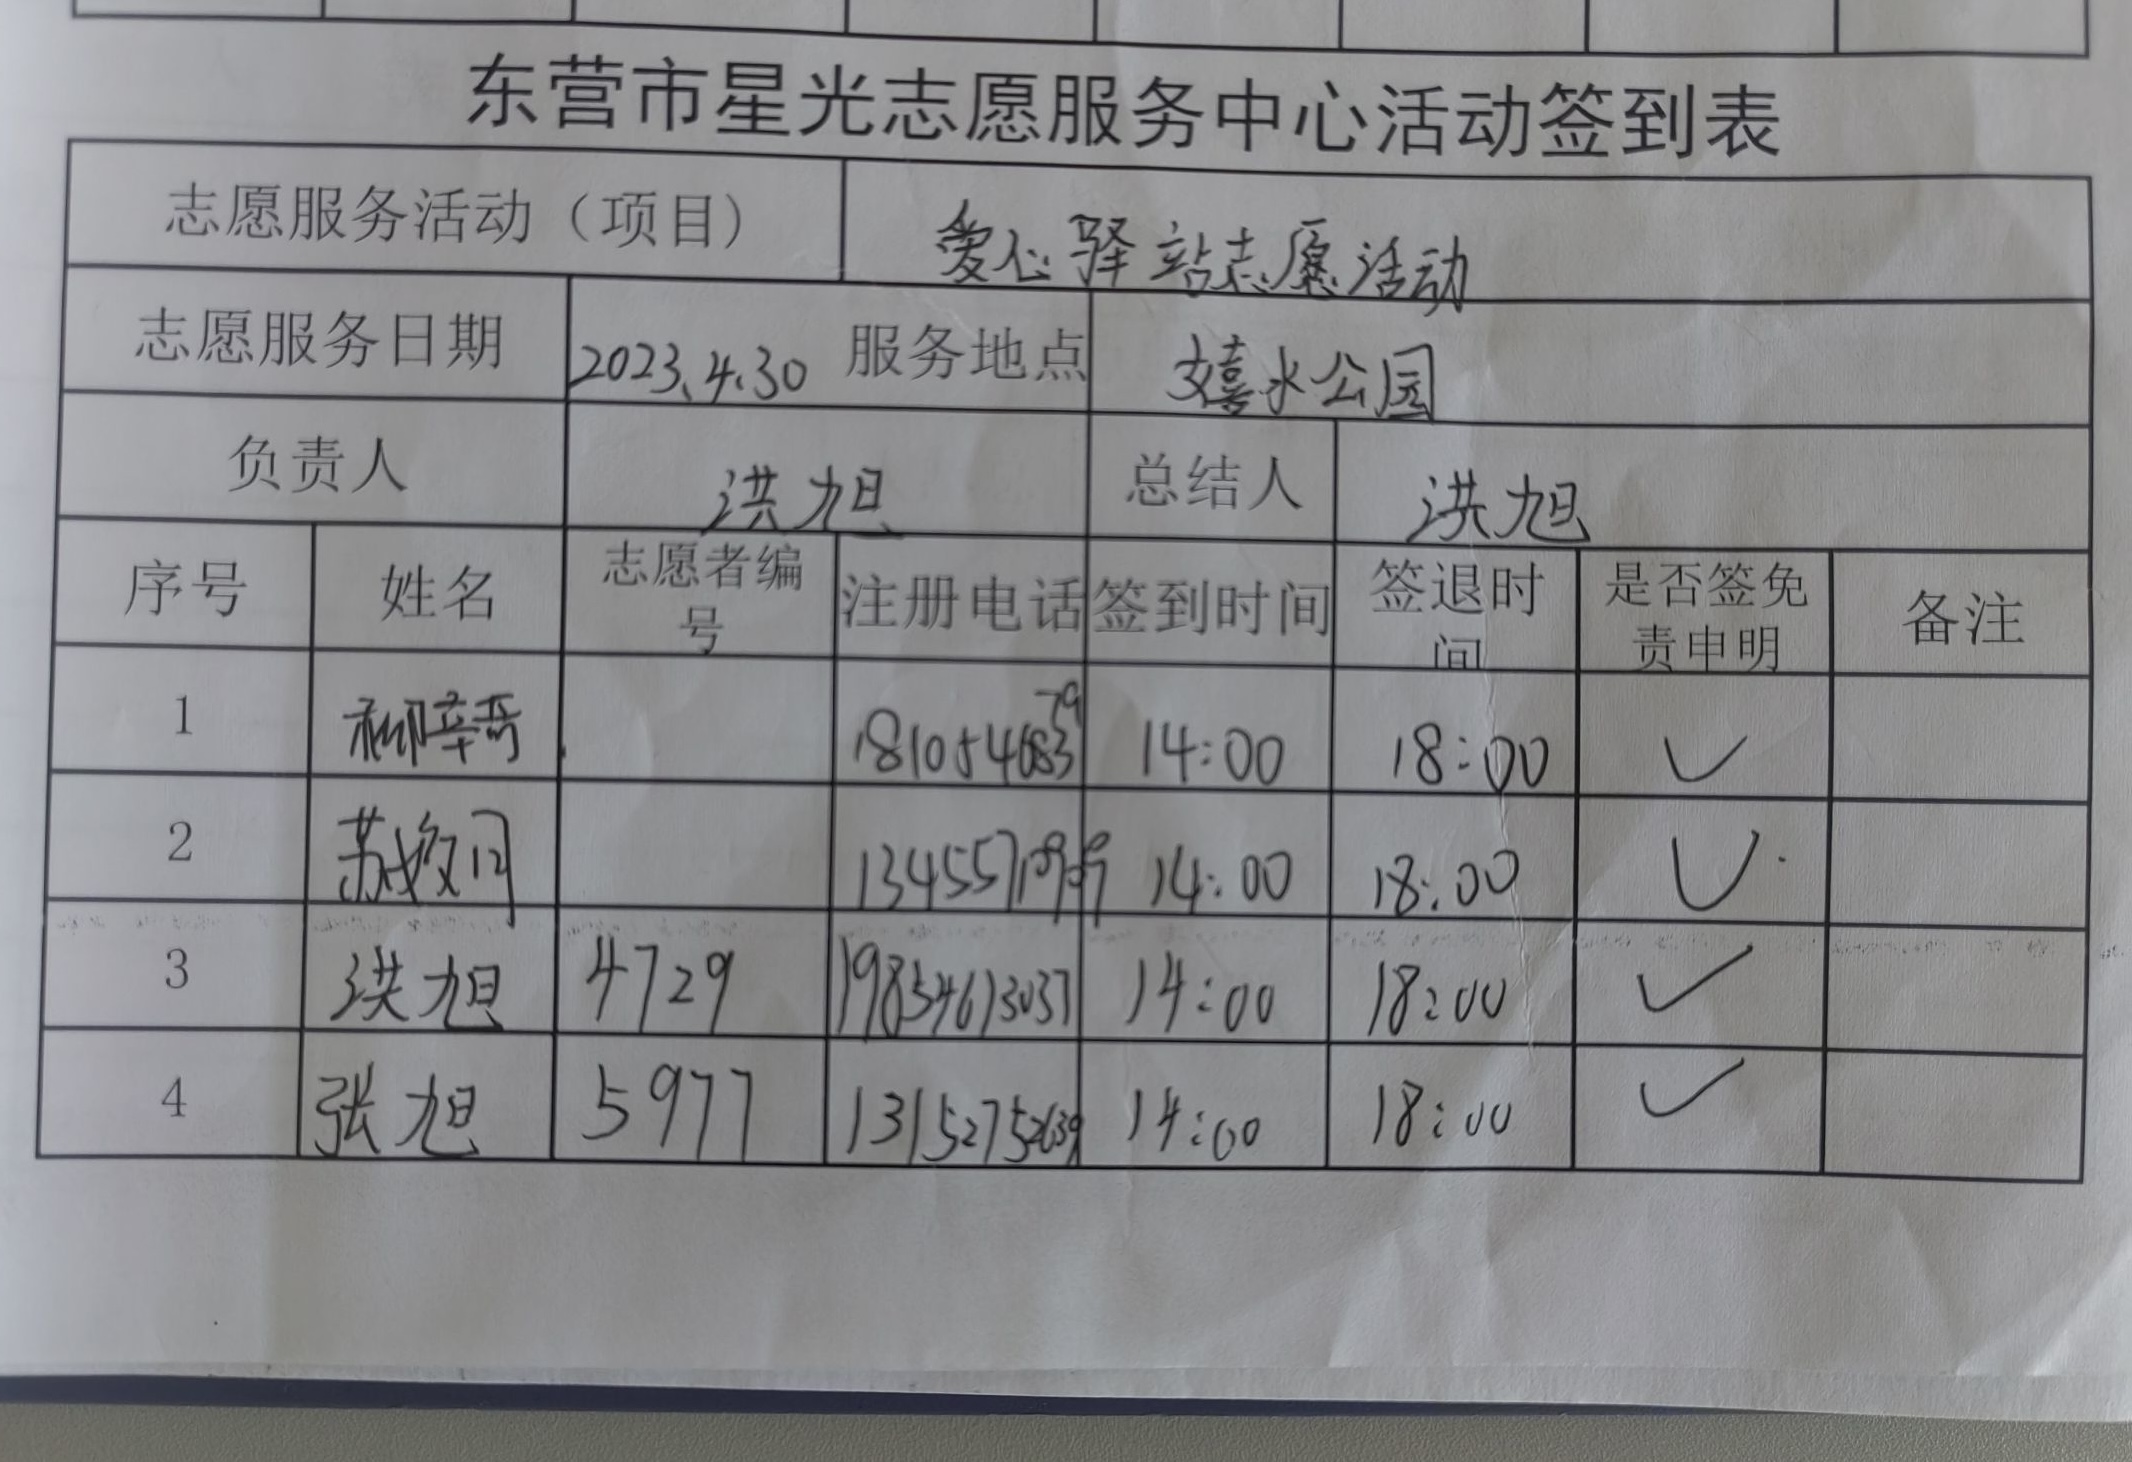 东营市星光志愿服务中心活动签到表
志愿服务活动（项目） 爱心驿站志愿活动
志愿服务日期 2023.4.30 服务地点 嬉水公园
负责人 洪旭 总结人 洪旭
序号 姓名 志愿者编号 注册电话 签到时间 签退时间 是否签免责申明 备注
1 14:00 18:00 ✓
2 14:00 18:00 ✓
3 洪旭 4729 19854613037 14:00 18:00 ✓
4 张旭 5977 13152752639 14:00 18:00 ✓